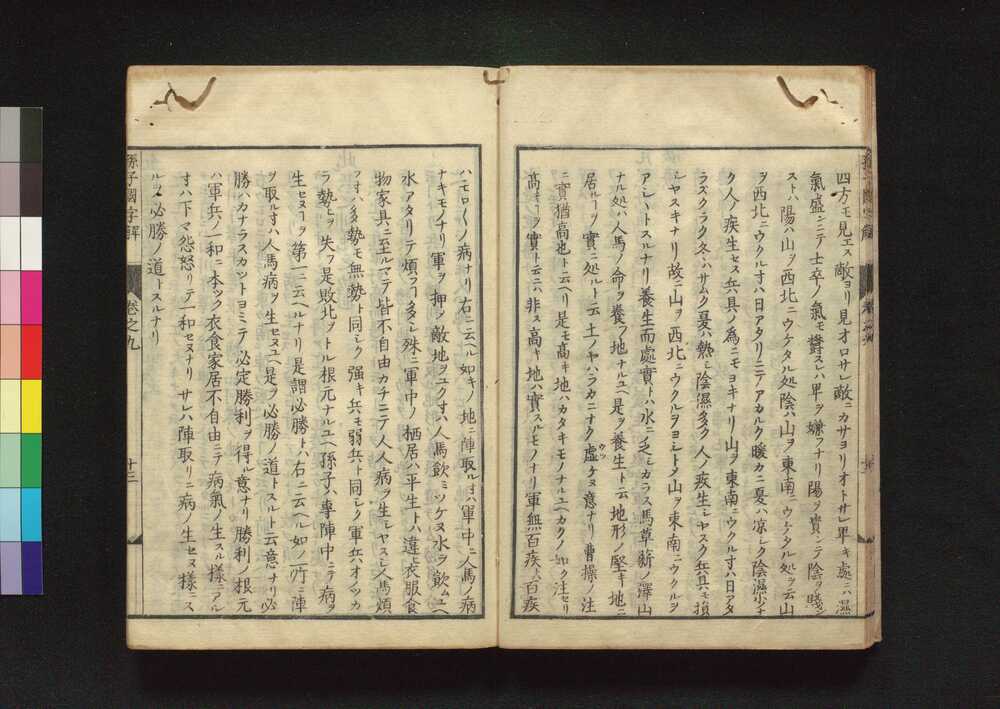 四方モ見エス敵ヨリ見オロサレ敵ニカサヨリオトサレ卑キ處ニハ濕
氣盛ンニテ士卒ノ氣モ欝スレハ卑ヲ嫌フナリ陽ヲ貴ンテ陰ヲ賤シ
ストハ陽ハ山ヲ西北ニウケタル処陰ハ山ヲ東南ニウケタル処ヲ云山
ヲ西北ニウクル寸ハ日アタリニテアカルク暖カニ夏ハ凉シク陰濕少ナ
ク人ノ疾生セス兵具ノ為ニモヨキナリ山ヲ東南ニウクル寸ハ日アタ
ラスクラク冬ハサムク夏ハ熱シ陰濕多ク人ノ疾生シヤスク兵具モ損
シヤスキナリ故ニ山ヲ西北ニウクルヲヨシトメ山ヲ東南ニウクルヲ
アシヽトスルナリ養生而處實トハ水ニ乏シカラス馬草薪ノ澤山
ナル処ハ人馬ノ命ヲ養フ地ナルユヘ是ヲ養生ト云地形ノ堅キ地ニ
居ルヿヲ實ニ処ルト云土ノヤハラカニナク虚ケヌ意ナリ曹操ノ注
ニ實猶高也ト云ヘリ是モ高キ地ハカタキモノナルユヘカクノ如ク注セリ
高キヿヲ實ト云ニハ非ス高キ地ハ實スルモノナリ軍無百疾トハ百疾
ハモロ〱ノ病ナリ右ニ云ヘル如キノ地ニ陣取ル寸ハ軍中ニ人馬ノ病
ナキモノナリ軍ヲ押ノ敵地ヲユク寸ハ人馬飲ミツケヌ水ヲ飲ムユヘ
水アタリテ煩フヿ多シ殊ニ軍中ノ栖居ハ平生トハ違ヒ衣服食
物家具ニ至ルマテ皆不自由カチニテ人人病ヲ生シヤスシ人馬煩
フ寸ハ多勢モ無勢ト同シク强キ兵モ弱兵ト同シク軍兵オノツカ
ラ勢ヒヲ失フ是敗北ヲトル根元ナルユヘ孫子ハ專陣中ニテ病ヲ
生セヌヿヲ第一ニ云ヘルナリ是謂必勝トハ右ニ云ヘル如ノ所ニ陣
ヲ取ル寸ハ人馬病ヲ生セヌユヘ是ヲ必勝ノ道トスルト云意ナリ必
勝ハカナラスカツトヨミテ必定勝利ヲ得ル意ナリ勝利ノ根元
ハ軍兵ノ一和ニ本ツク衣食家居不自由ニテ病氣ノ生スル樣ニアル
寸ハ下マ怨怒リテ一和セヌナリサレハ陣取リニ病ノ生セヌ樣ニス
ルヲ必勝ノ道トスルナリ
孫子國字解
卷之九
十三